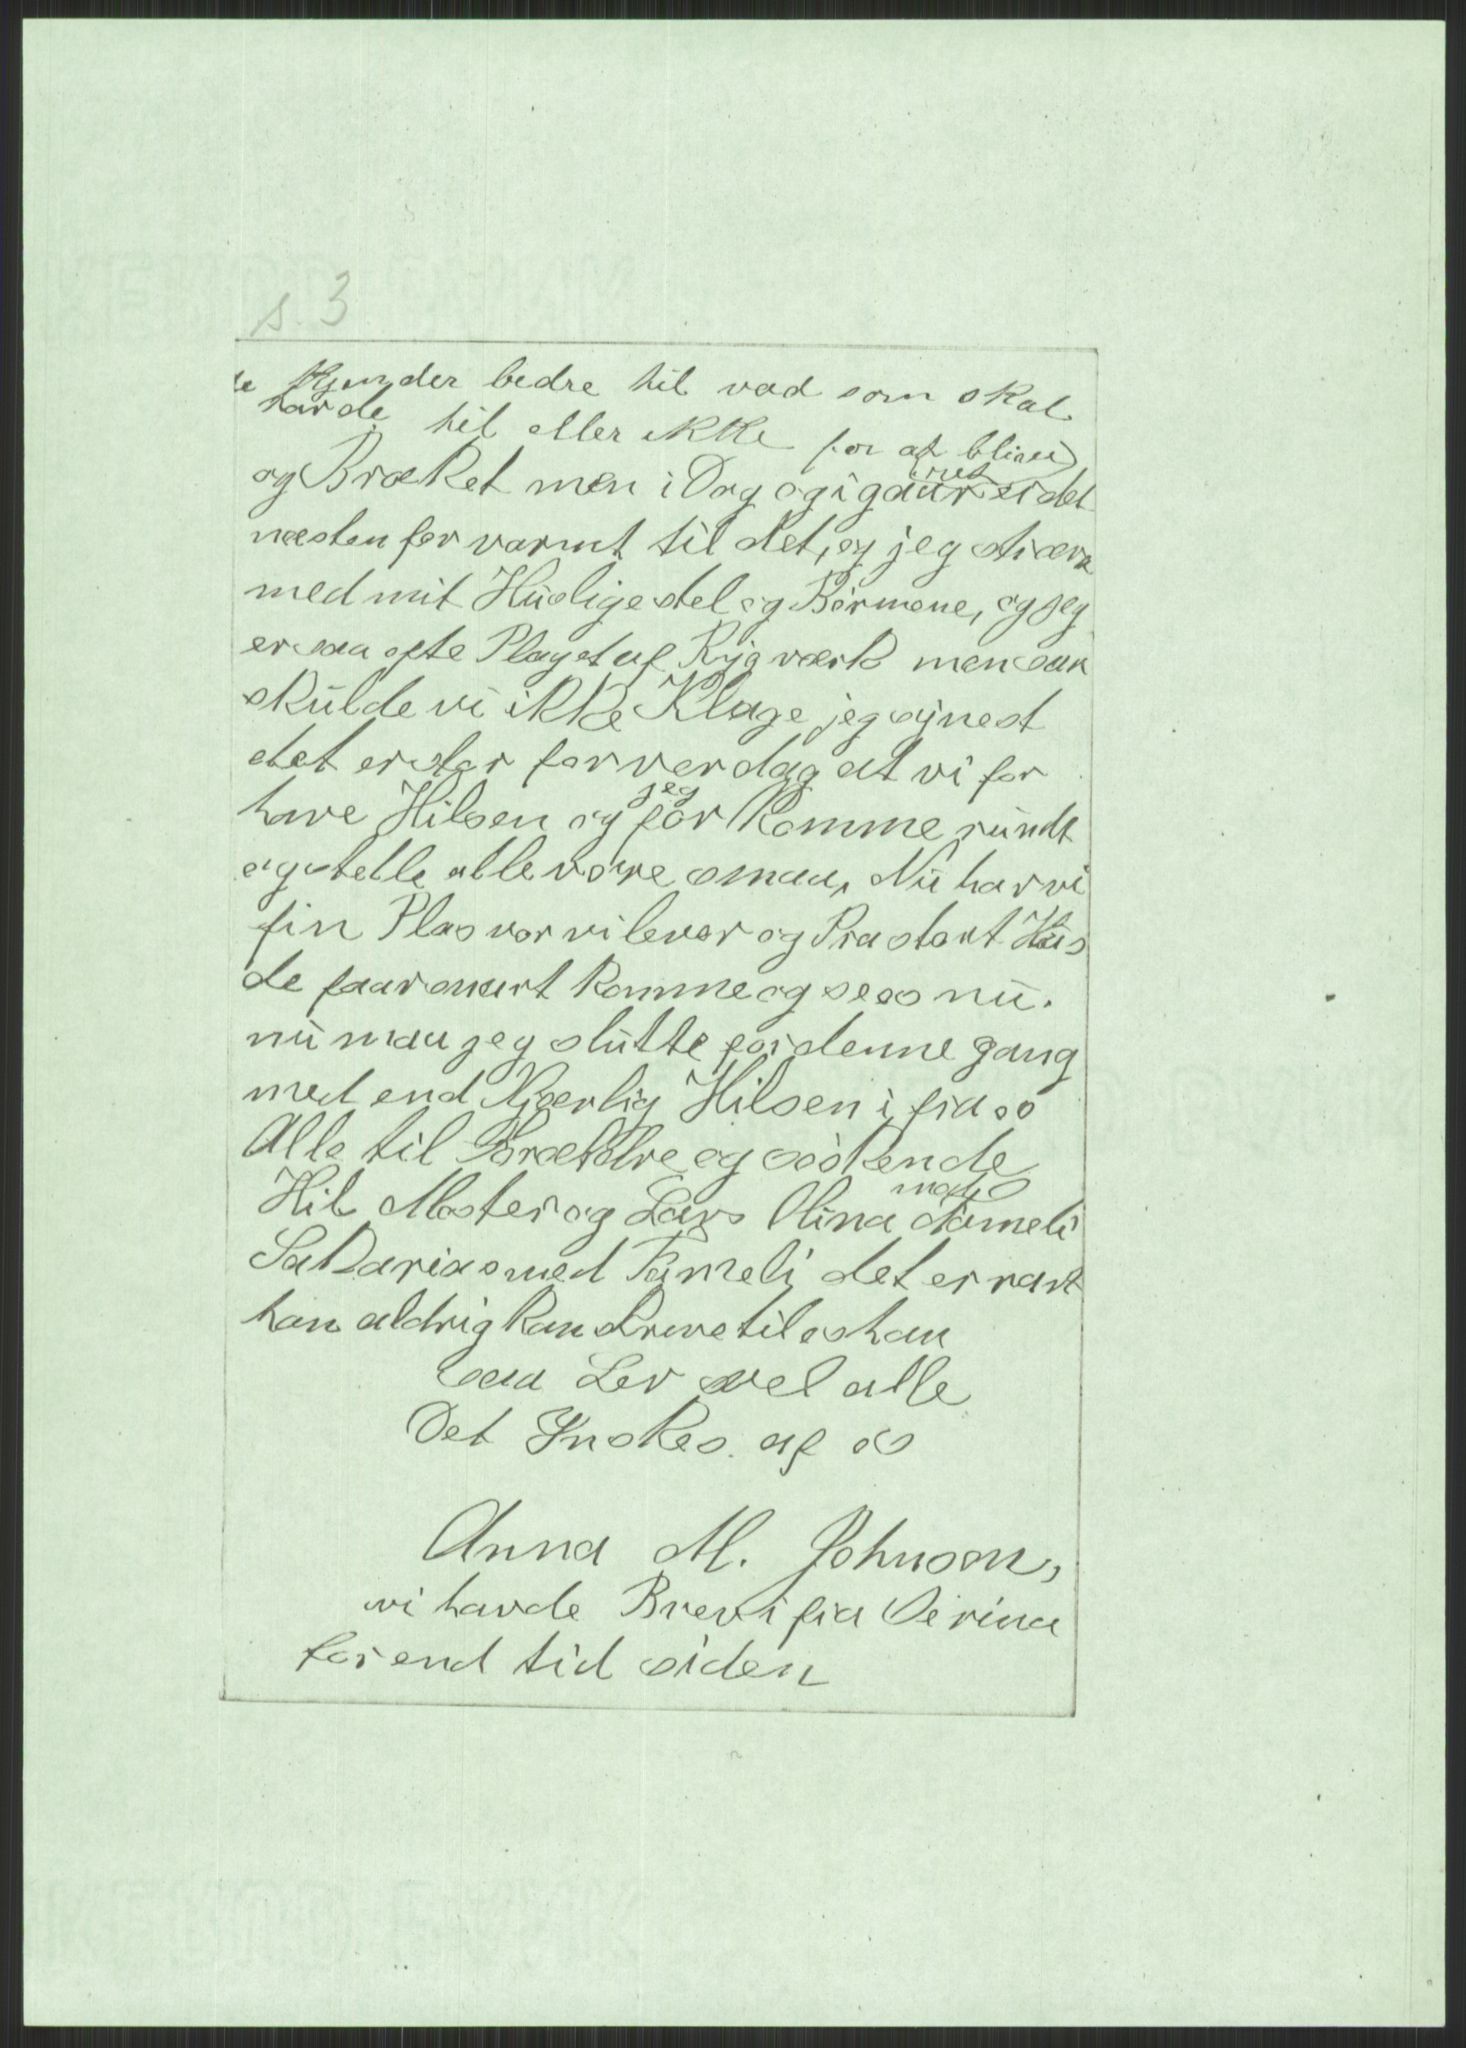 s. 3
Kjender bedre til vad som skal
harde til eller ikke for at blive
og Bræket men i Dag og i gaar er det
næsten for varmt til det, og jeg
med mit Huslige stel og Börnene, og jeg
er saa ofte Plaget af Rygværk men saa
skulde vi ikke Klage jeg synest
det er stor forverdag at vi for
have Hilsen og jeg for Komme rundt
og stelle alle vore smaa, Nu har vi
fin Plas vor vi lever og Bra stort Hus
de faar snart komme og se os nu.
nu maa jeg slutte for denne gang
med end Kjærlig Hilsen i fra os
Alle til Forældre og söskende
Hils Moster og Lars Olina med Fameli
Sakarias med Fameli det er rart
han aldrig kan skrive til os han
saa Lev vel alle
Det Ynskes af os
Anna M. Johnson,
vi havde Brev i fra Serina
for end tid siden